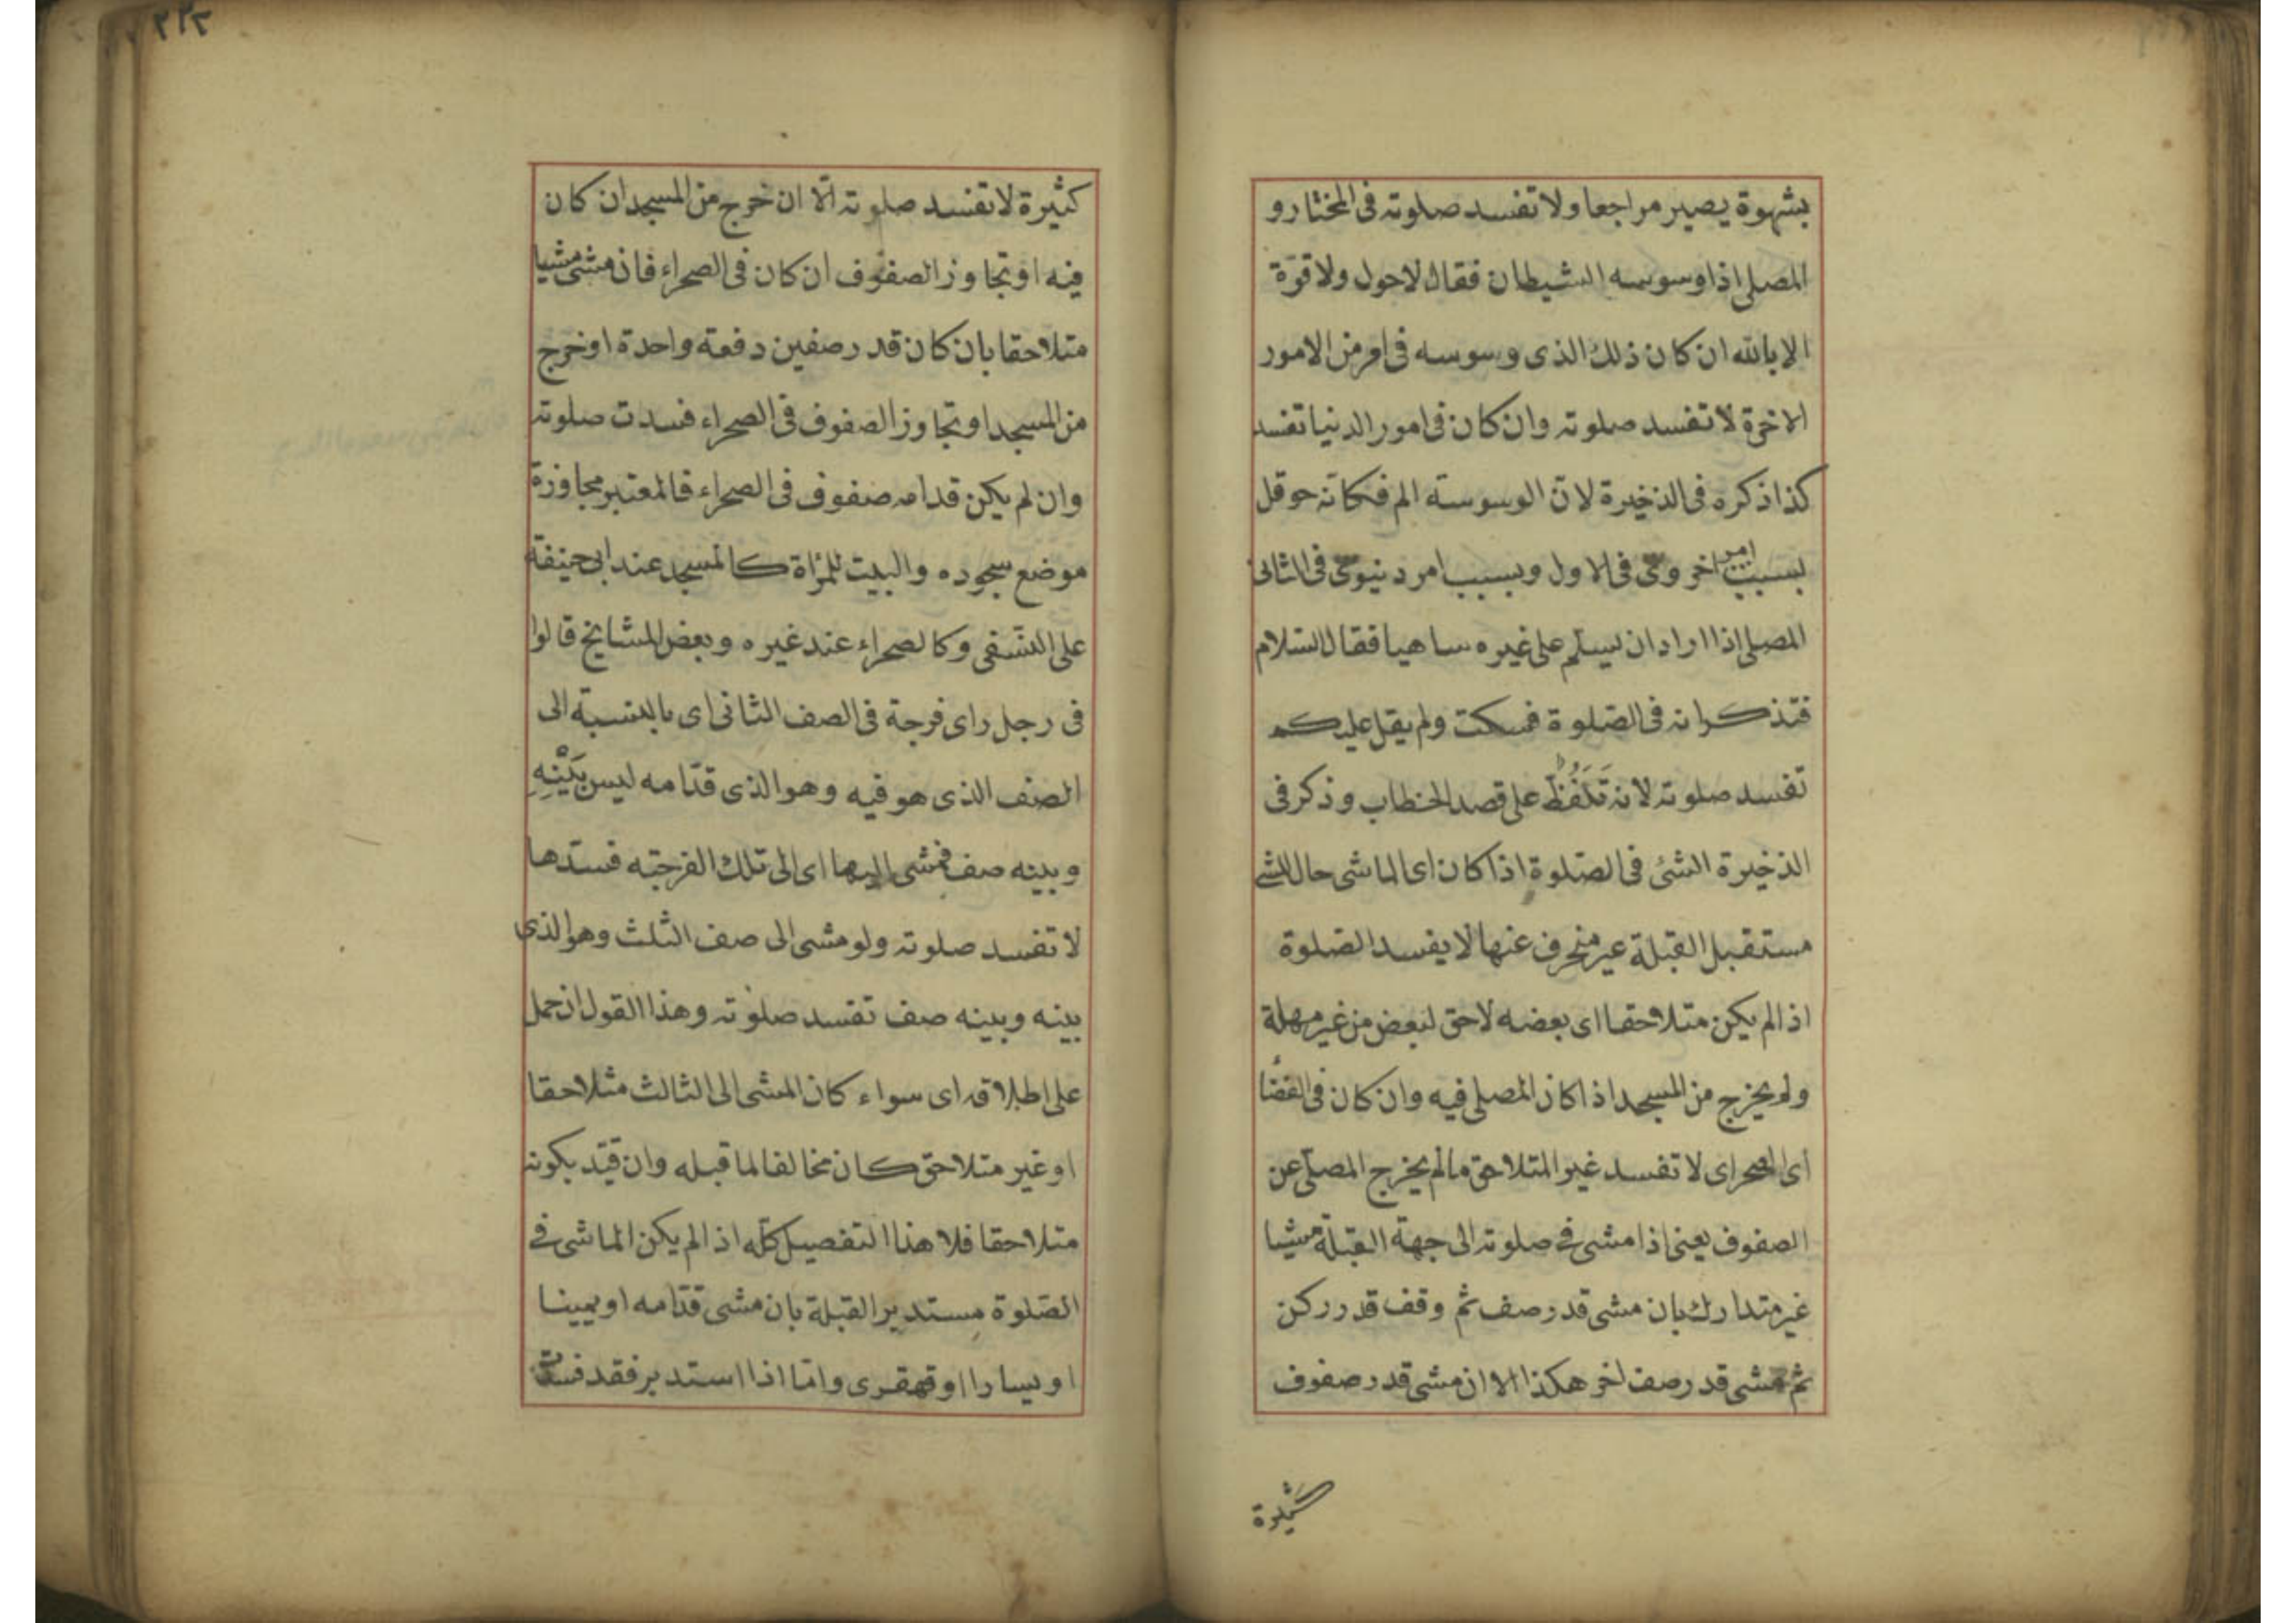 بشهوة يصير مراجعا ولا تفسد صلوته فى المختار و
المصلى اذا وسوسه الشيطان فقال لا حول ولا قوة
الا بالله ان كان ذلك الذى وسوسه فى امر من الامور
الاخرة لا تفسد صلوته وان كان فى امور الدنيا تفسد
كذا ذكره فى الذخيرة لان الوسوسته الم فكانه حوقل
بسبب امر اخروى فى الاول وبسبب امر دنيوى فى الثانى
المصلى اذا اراد ان يسلم على غيره ساهيا فقال السلام
فتذكر انه فى الصلوة فسكت ولم يقل عليكم
تفسد صلوته لانه تَلَفُّظَ على قصد الخطاب وذكر فى
الذخيرة الشئ فى الصلوة اذا كان اى الماشى حال المشى
مستقبل القبلة غير منحرف عنها لا يفسد الصلوة
اذا لم يكن متلاحقا اى بعضه لاحق لبعض من غير مهلة
ولم يخرج من المسجد اذا كان المصلى فيه وان كان فى الفضا
اى الصحراى لا تفسد غير المتلاحق ما لم يخرج المصلى عن
الصفوف يعنى اذا مشى فى صلوته الى جهة القبلة مشيا
غير متدارك بان مشى قدر صف ثم وقف قدر ركن
ثم مشى قدر صف اخر هكذا الا ان مشى قدر صفوف
كثيرة
٢٣٣
كثيرة لا تفسد صلوته الّا ان خرج من المسجد ان كان
فيه او تجاوز الصفوف ان كان فى الصحراء فان مشى مشيا
متلاحقا بان كان قدر صفين دفعة واحدة او خرج
من المسجد او تجاوز الصفوف فى الصحراء فسدت صلوته
وان لم يكن قدامه صفوف فى الصحراء فالمعتبر مجاوزة
موضع سجوده والبيت للمرأة كالمسجد عند ابى حنيفة
على النسفى وكالصحراء عند غيره وبعض المشايخ قالوا
فى رجل راى فرجة فى الصف الثانى اى بالنسبة الى
الصف الذى هو فيه وهو الذى قدّامه ليس بَيْنِهِ
وبينه صف فمشى اليها اى الى تلك الفرجته فسدّها
لا تفسد صلوته ولو مشى الى صف الثلث وهو الذى
بينه وبينه صف تفسد صلوته وهذا القول ان حمل
على اطلاقه اى سواء كان المشى الى الثالث متلاحقا
او غير متلاحق كان مخالفا لما قبله وان قيّد بكونه
متلاحقا فلا هذا التفصيل كلّه اذا لم يكن الماشى فى
الصّلوة مستدبر القبلة بان مشى قدّامه او يمينا
او يسارا او قهقرى وامّا اذا استدبر فقد فسدت